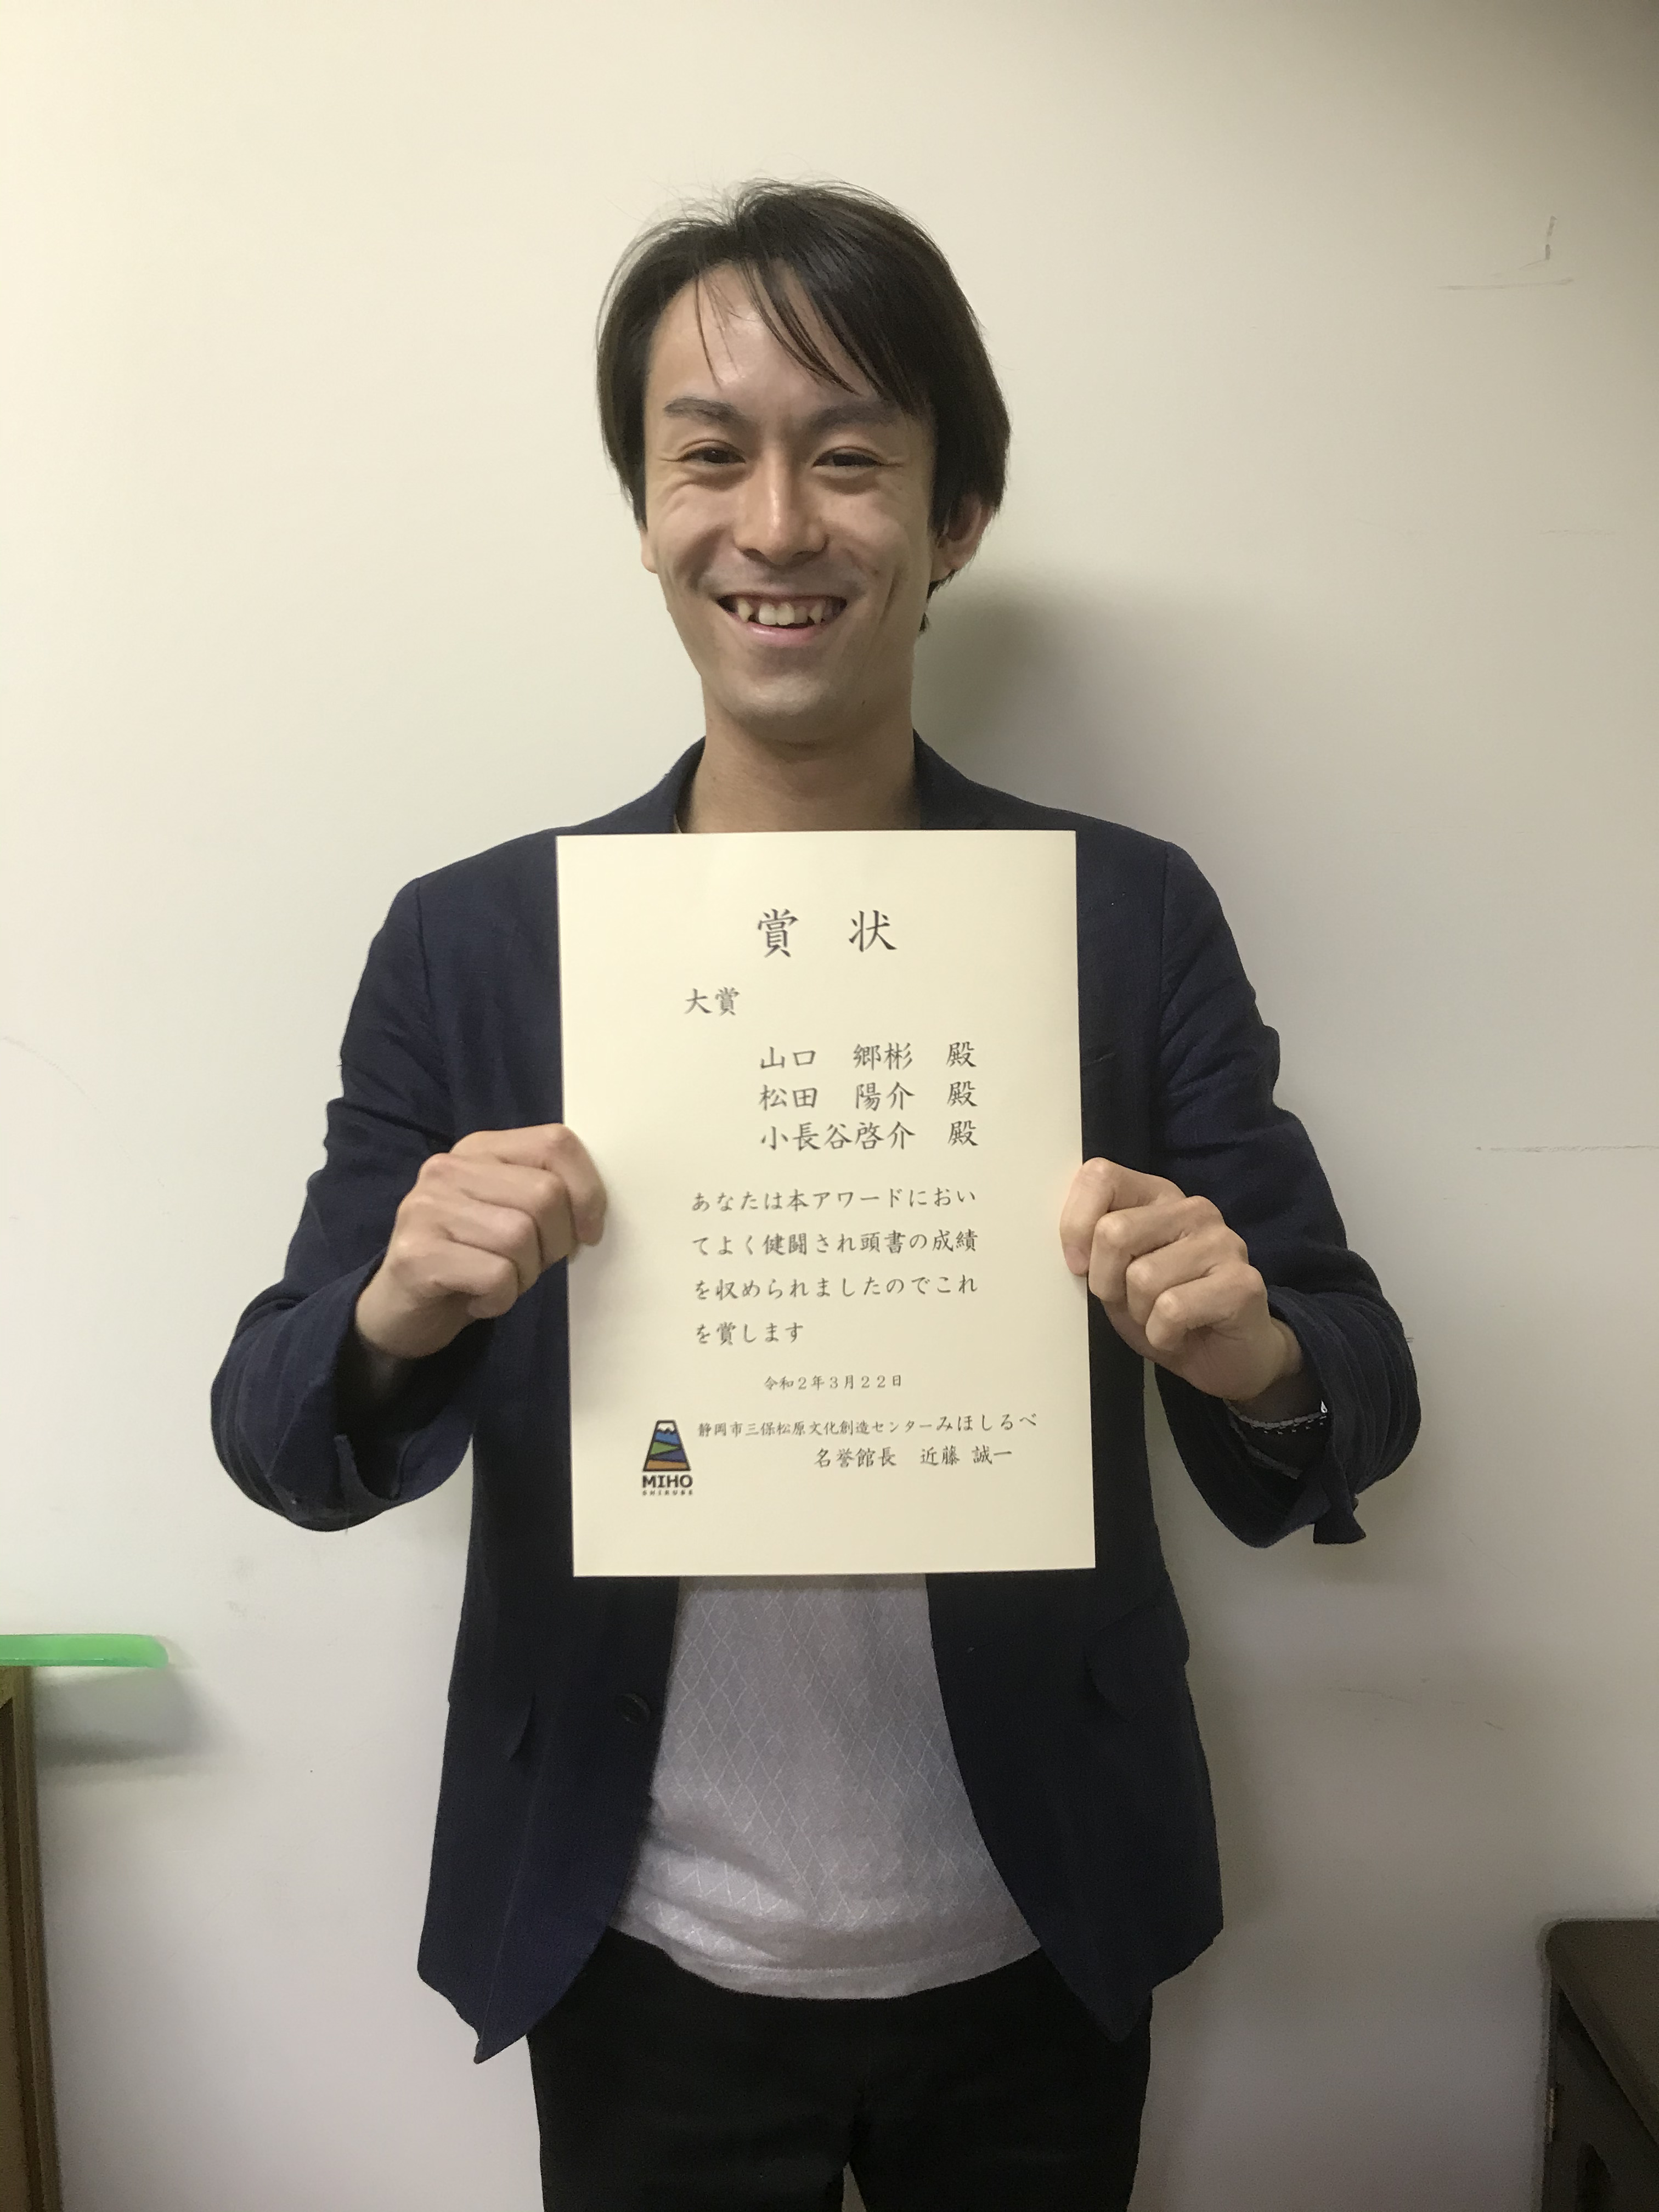 賞 状
大賞
山口 郷彬 殿
松田 陽介 殿
小長谷啓介 殿
あなたは本アワードにおい
てよく健闘され頭書の成績
を収められましたのでこれ
を賞します
令和2年3月22日
静岡市三保松原文化創造センターみほしるべ
名誉館長 近藤 誠一
MIHO
SHIRUBE